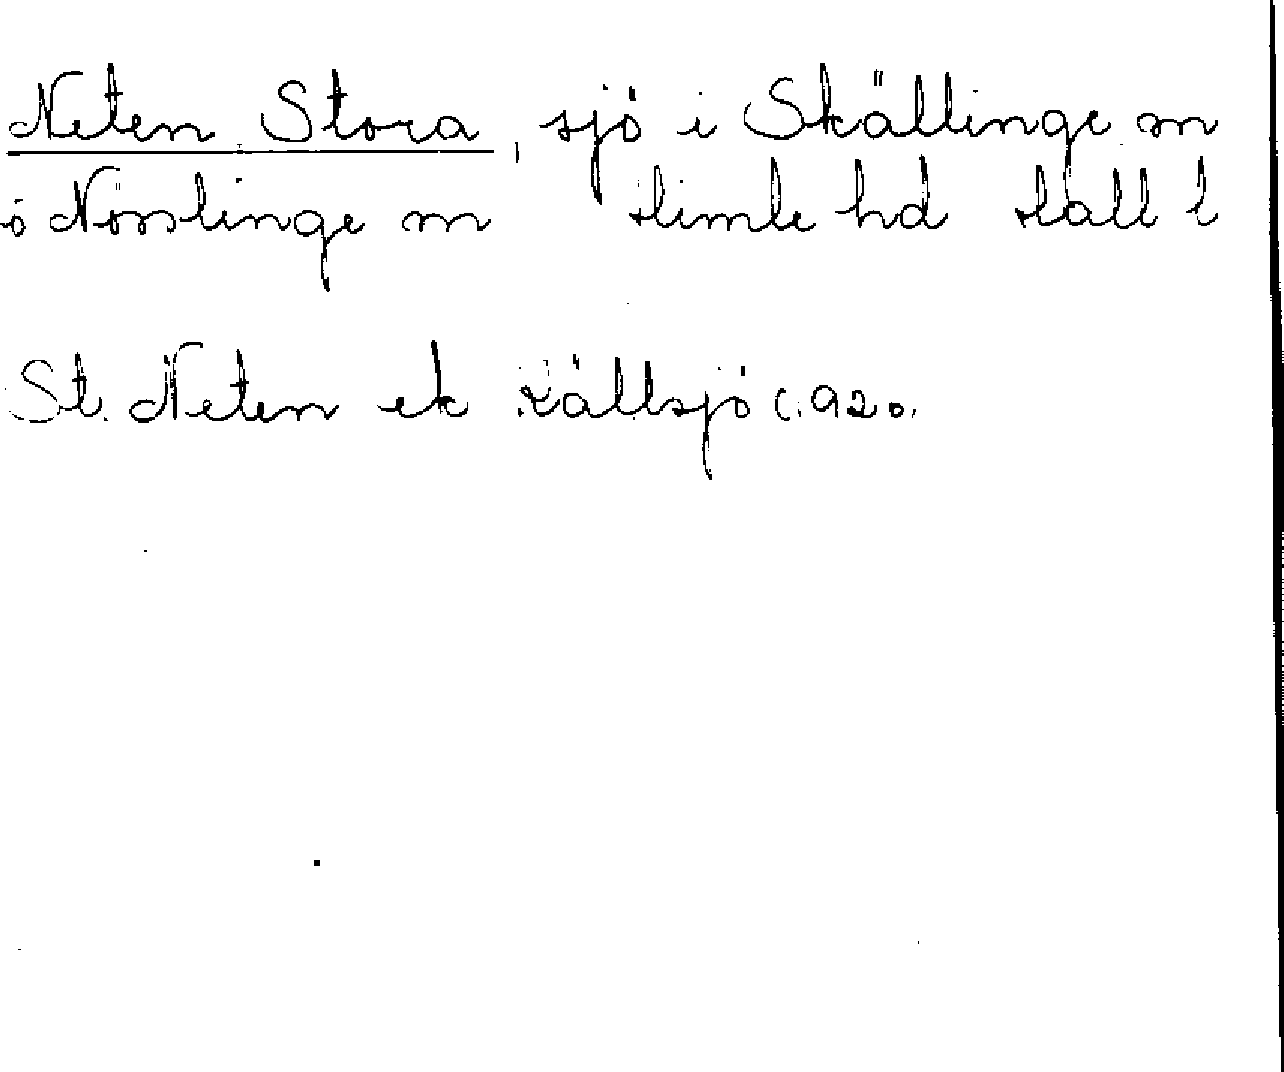 Neten Stora, sjö i Skällinge m
o Nösslinge m Himle hd Hall l
St. Neten ek Källsjö c. 1920.